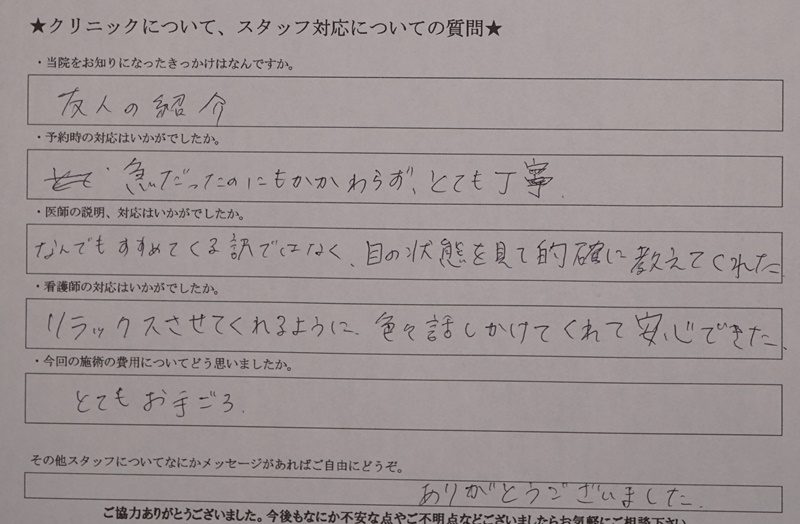 ★クリニックについて、スタッフ対応についての質問★
・当院をお知りになったきっかけはなんですか。
友人の紹介
・予約時の対応はいかがでしたか。
急だったのにもかかわらず、とても丁寧.
・医師の説明、対応はいかがでしたか。
なんでもすすめてくる訳ではなく、目の状態を見て的確に教えてくれた.
・看護師の対応はいかがでしたか。
リラックスさせてくれるように、色々話しかけてくれて安心できた.
・今回の施術の費用についてどう思いましたか。
とてもお手ごろ.
その他スタッフについてなにかメッセージがあればご自由にどうぞ。
ありがとうございました.
ご協力ありがとうございました。今後もなにか不安な点やご不明点などございましたらお気軽にご相談下さい